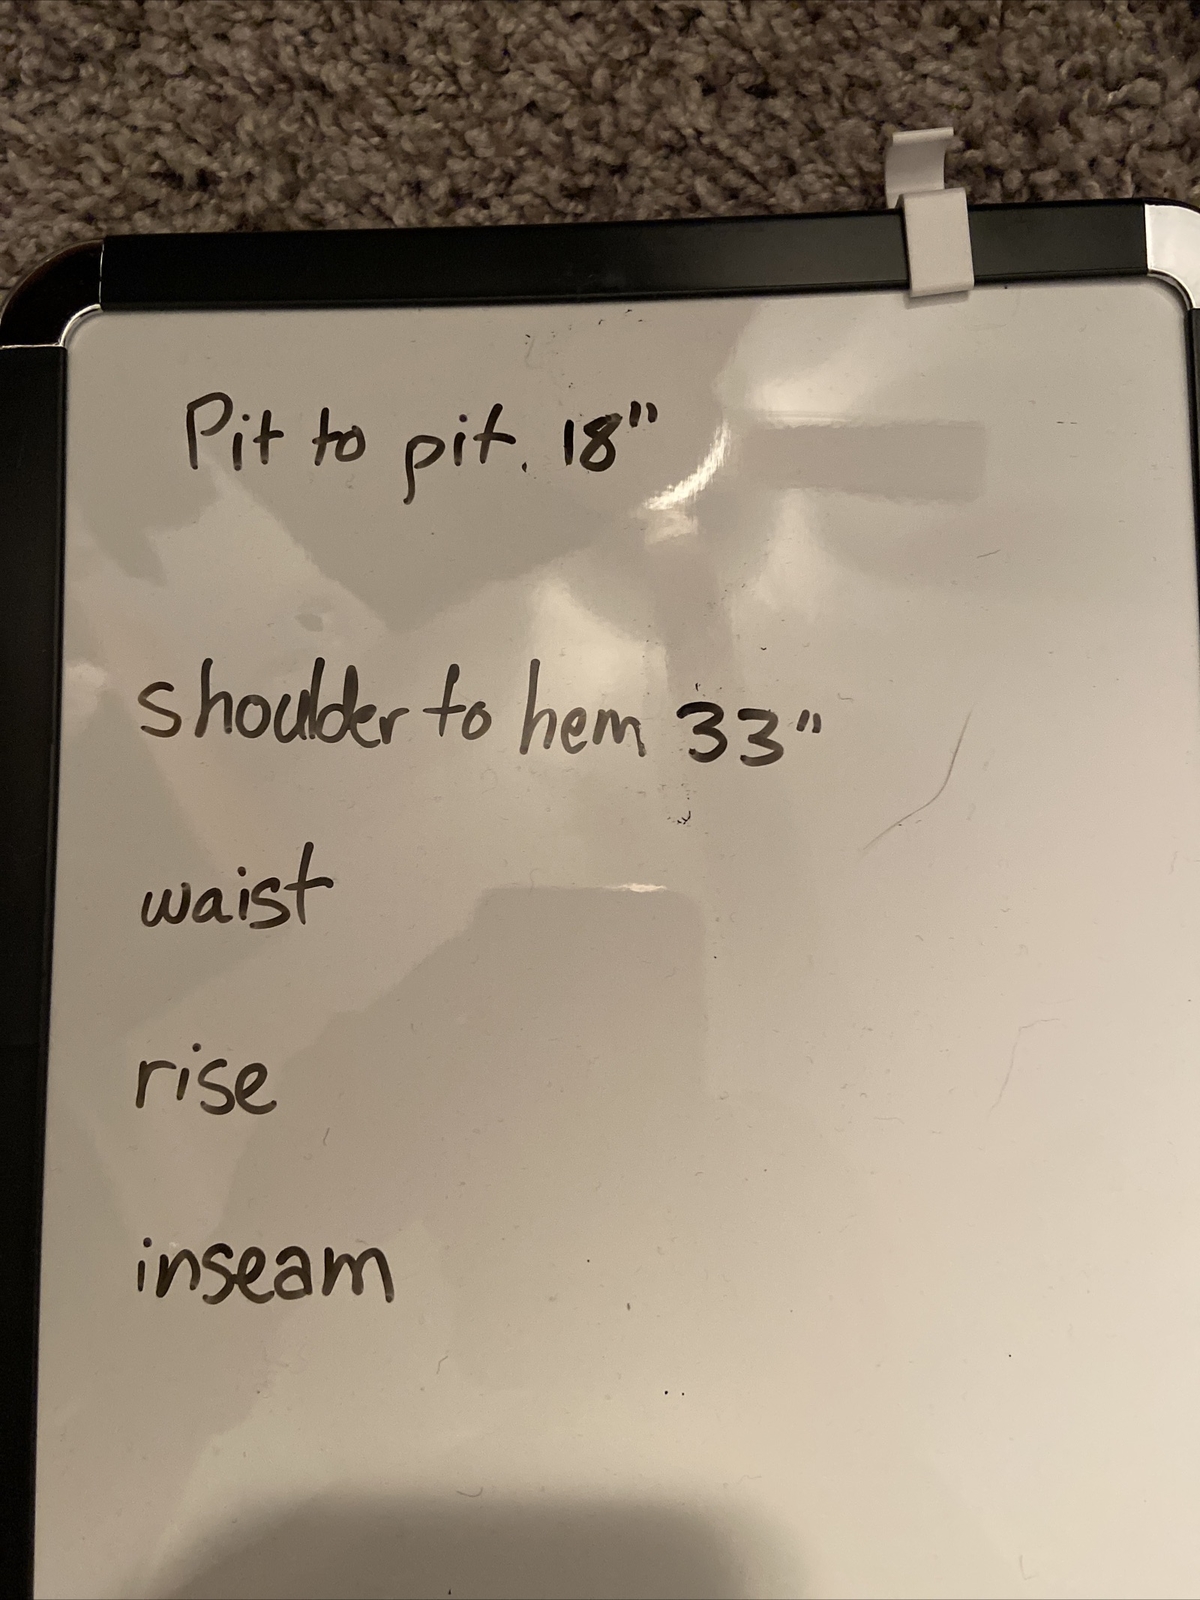 Pit to pit. 18"
shoulder to hem 33"
waist
rise
inseam